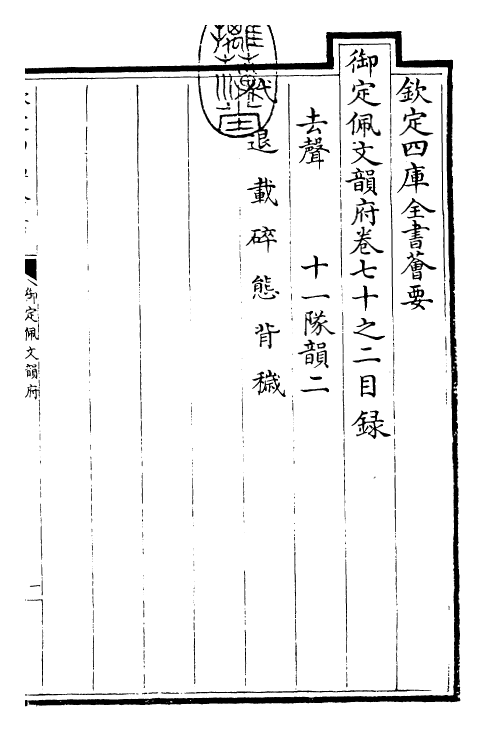 欽定四庫全書薈要
御定佩文韻府卷七十之二目錄
去聲 十一隊韻二
代退載碎態背穢
御定佩文韻府